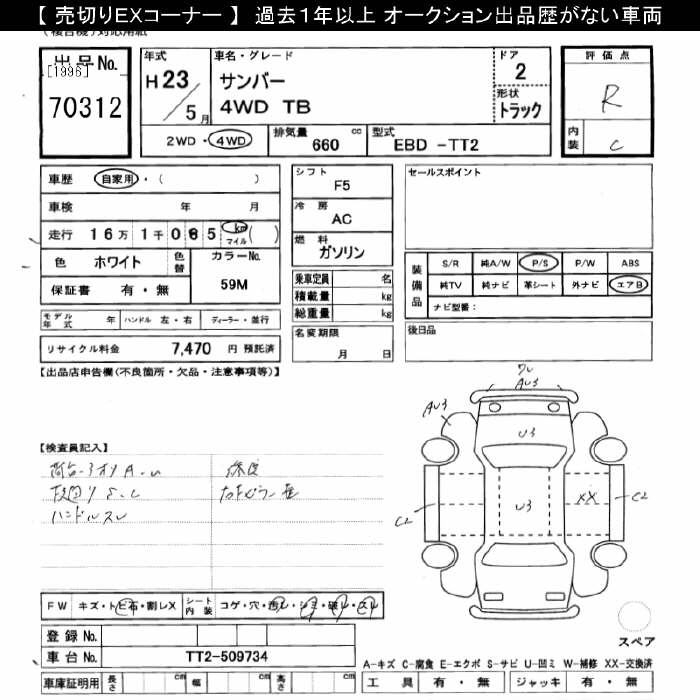 【 売切りEXコーナー 】 過去1年以上 オークション出品歴がない車両
出品No.
[1996]
70312
年式
H 23 / 5 月
車名・グレード
サンバー
4WD TB
ドア
2
形状
トラック
評価点
R
内装
C
2WD・4WD
排気量 cc
660
型式
EBD -TT2
車歴 自家用・( )
車検 年 月
走行 16万 1千 085 km マイル ( )
色 ホワイト
色替
カラーNo.
59M
保証書 有・無
モデル年式 年 ハンドル 左・右 ディーラー・並行
リサイクル料金 7,470 円 預託済
シフト
F5
冷房
AC
燃料
ガソリン
乗車定員 名
積載量 kg
総重量 kg
名変期限
月 日
セールスポイント
装備品
S/R 純A/W P/S P/W ABS
純TV 純ナビ 革シート 外ナビ エアB
ナビ型番:
後日品
【出品店申告欄(不良箇所・欠品・注意事項等)】
【検査員記入】
ハンドルスレ
AU3
AU3
U3
U3
XX
C2
C2
FW キズ・トビ石・割レX
シート内装 コゲ・穴・汚レ・シミ・破レ・スレ
登録 No.
車台 No. TT2-509734
車庫証明用 長さ cm 幅 cm 高さ cm
スペア
A-キズ C-腐食 E-エクボ S-サビ U-凹ミ W-補修 XX-交換済
工具 有・無 ジャッキ 有・無